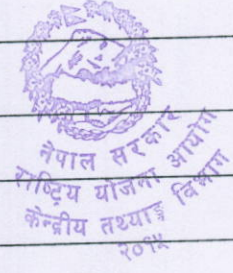 नेपाल सरकार
राष्ट्रिय योजना आयोग
केन्द्रीय तथ्याङ्क विभाग
२०१५